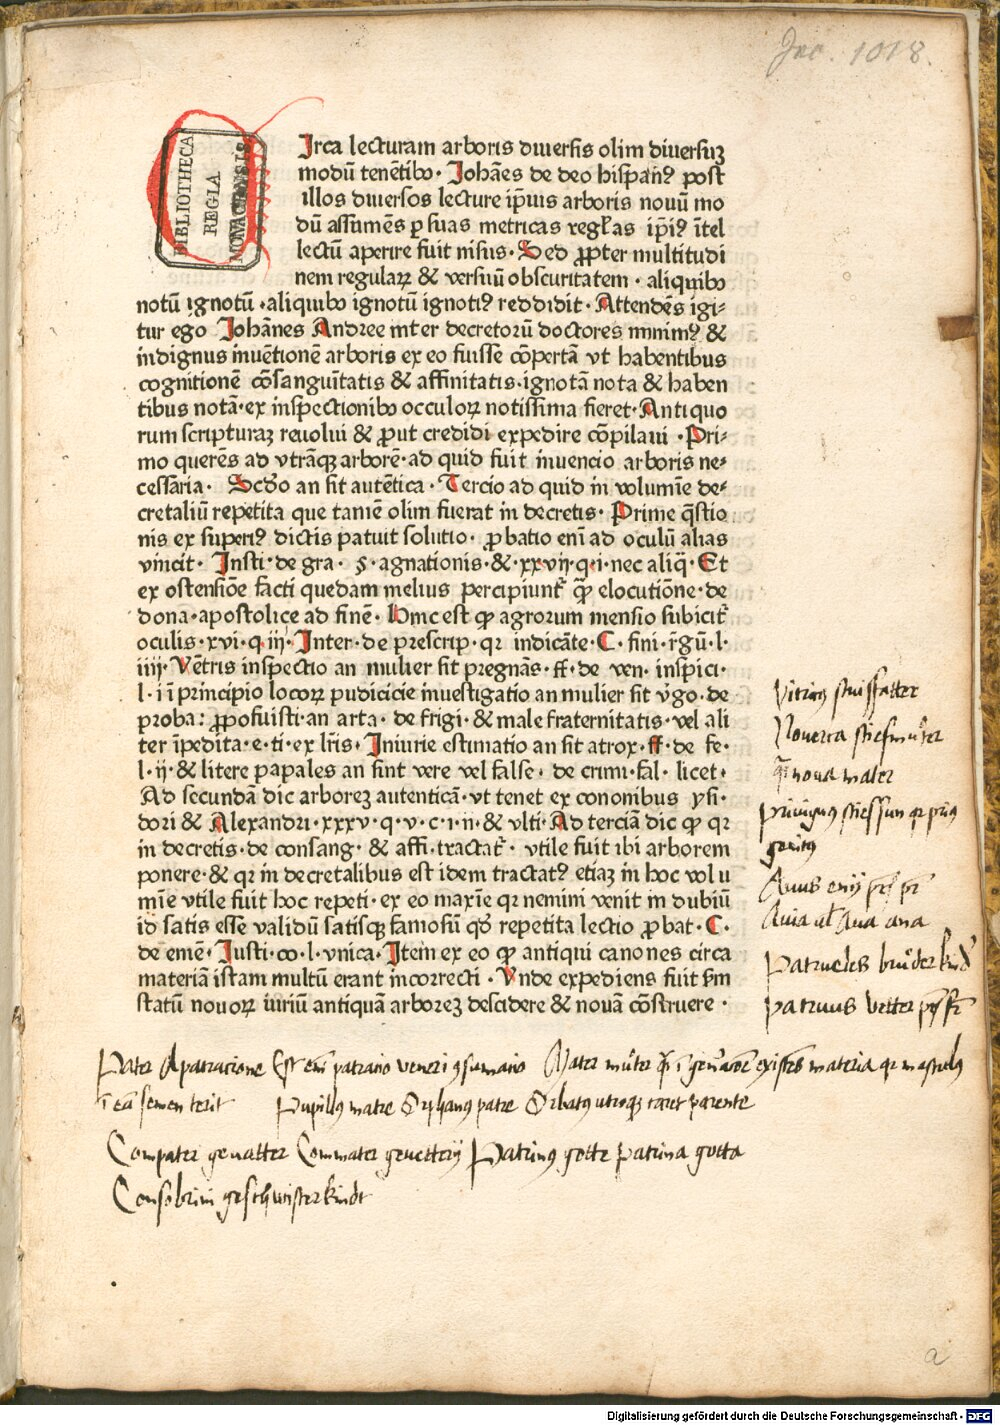 Inc. 1018.
BIBLIOTHECA
REGIA
MONACENSIS
Irca lecturam arboris diuersis olim diuersuꝫ
modū tenētibꝰ· Johānes de deo hispanꝰ post
illos diuersos lecture ip̄ius arboris nouū mo
dū assumēs ꝑ suas metricas regl̓as ip̄iꝰ ītel
lectū aperire fuit nisus· Sed ꝓpter multitudi
nem regularꝝ & versuū obscuritatem · aliquibꝰ
notū ignotū ·aliquibꝰ ignotū ignotiꝰ reddidit· Attendēs igi⸗
tur ego Johānes Andree inter decretorū doctores minimꝰ &
indignus inuētionē arboris ex eo fuisse cōpertā vt habentibus
cognitionē cōsanguītatis & affinitatis·ignotā nota & haben
tibus notā·ex inspectionibꝰ occulorꝝ notissima fieret·Antiquo
rum scripturaꝫ reuolui & ꝓut credidi expedire cōpilaui ·Pri⸗
mo querēs ad vtrāqꝫ arborē·ad quid fuit inuencio arboris ne⸗
cessaria· Scd̓o an sit autētica ·Tercio ad quid in volumīe de⸗
cretaliū repetita que tamē olim fuerat in decretis· Prime q̄stio
nis ex superiꝰ dictis patuit solutio· ꝓbatio enī ad oculū alias
vincit· Insti·de gra· §·agnationis·&·xxvij·q·i·nec aliq̄· Et
ex ostensiōe facti quedam melius percipiunt̄ qꝫ elocutiōne·de
dona·apostolice ad finē· Hinc est ꝙ agrorum mensio subicit̄
oculis·xvi·q·iij·Inter·de prescrip·qꝛ indicāte·C· fini·r̄gū·l·
iiij·Vētris inspectio an mulier sit pregnās·ff·de ven· inspici·
l·i ī principio locorꝝ pudicicie inuestigatio an mulier sit v̓go·de
proba: ꝓposuisti·an arta· de frigi·& male fraternitatis·vel ali
ter īpedita·e·ti·ex lr̄is· Iniurie estimatio an sit atrox·ff·de fe·
l·ij·& litere papales an sint vere vel false· de crimi·fal· licet·
Ad secundā dic arboreꝫ autenticā·vt tenet ex cononibus ysi·
dori & Alexandri·xxxv·q·v·c·i·ii·& vlti·Ad terciā dic ꝙ qꝛ
in decretis·de consang· & affi·tractat̄· vtile fuit ibi arborem
ponere·& qꝛ in decretalibus est idem tractatꝰ etiaꝫ in hoc volu
mīe vtile fuit hoc repeti·ex eo maxīe qꝛ nemini venit in dubiū
id satis esse validū satisqꝫ famosū qd̓ repetita lectio ꝓbat·C·
de emē·Iusti·co·l·vnica·Item ex eo ꝙ antiqui canones circa
materiā istam multū erant incorrecti ·Vnde expediens fuit ẜm
statū nouorꝝ iuriū antiquā arboreꝫ descidere & nouā cōstruere ·
Vitricus stuiffatter
Nouerca stiefmůter
noua mater
priuignus stiefsun
genitus
Auus
Auia ana
Patrueles brůderkind
patruus vetter
Pater Apatracione Est patratio veneri Mater můter materia
semen
Pupillus matre Orphanus patre Orbatus utroqꝫ caret parente
Compater geuatter Commater geuetterÿ Patrinus gotte patrina gotta
Consobrini geschwisterkindt
a
Digitalisierung gefördert durch die Deutsche Forschungsgemeinschaft - DFG